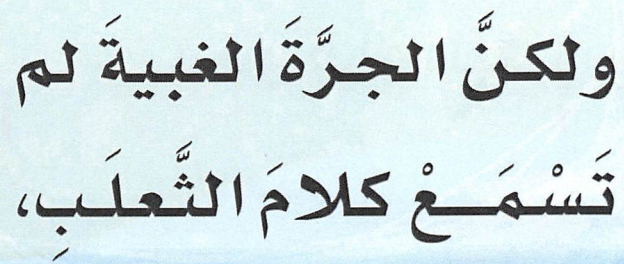 ولكنَّ الجرَّةَ الغبيةَ لم
تَسْمَـــعْ كلامَ الثَّعلَـبِ،